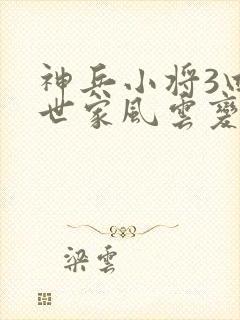 神兵小将3
世家風雲變
梁雲